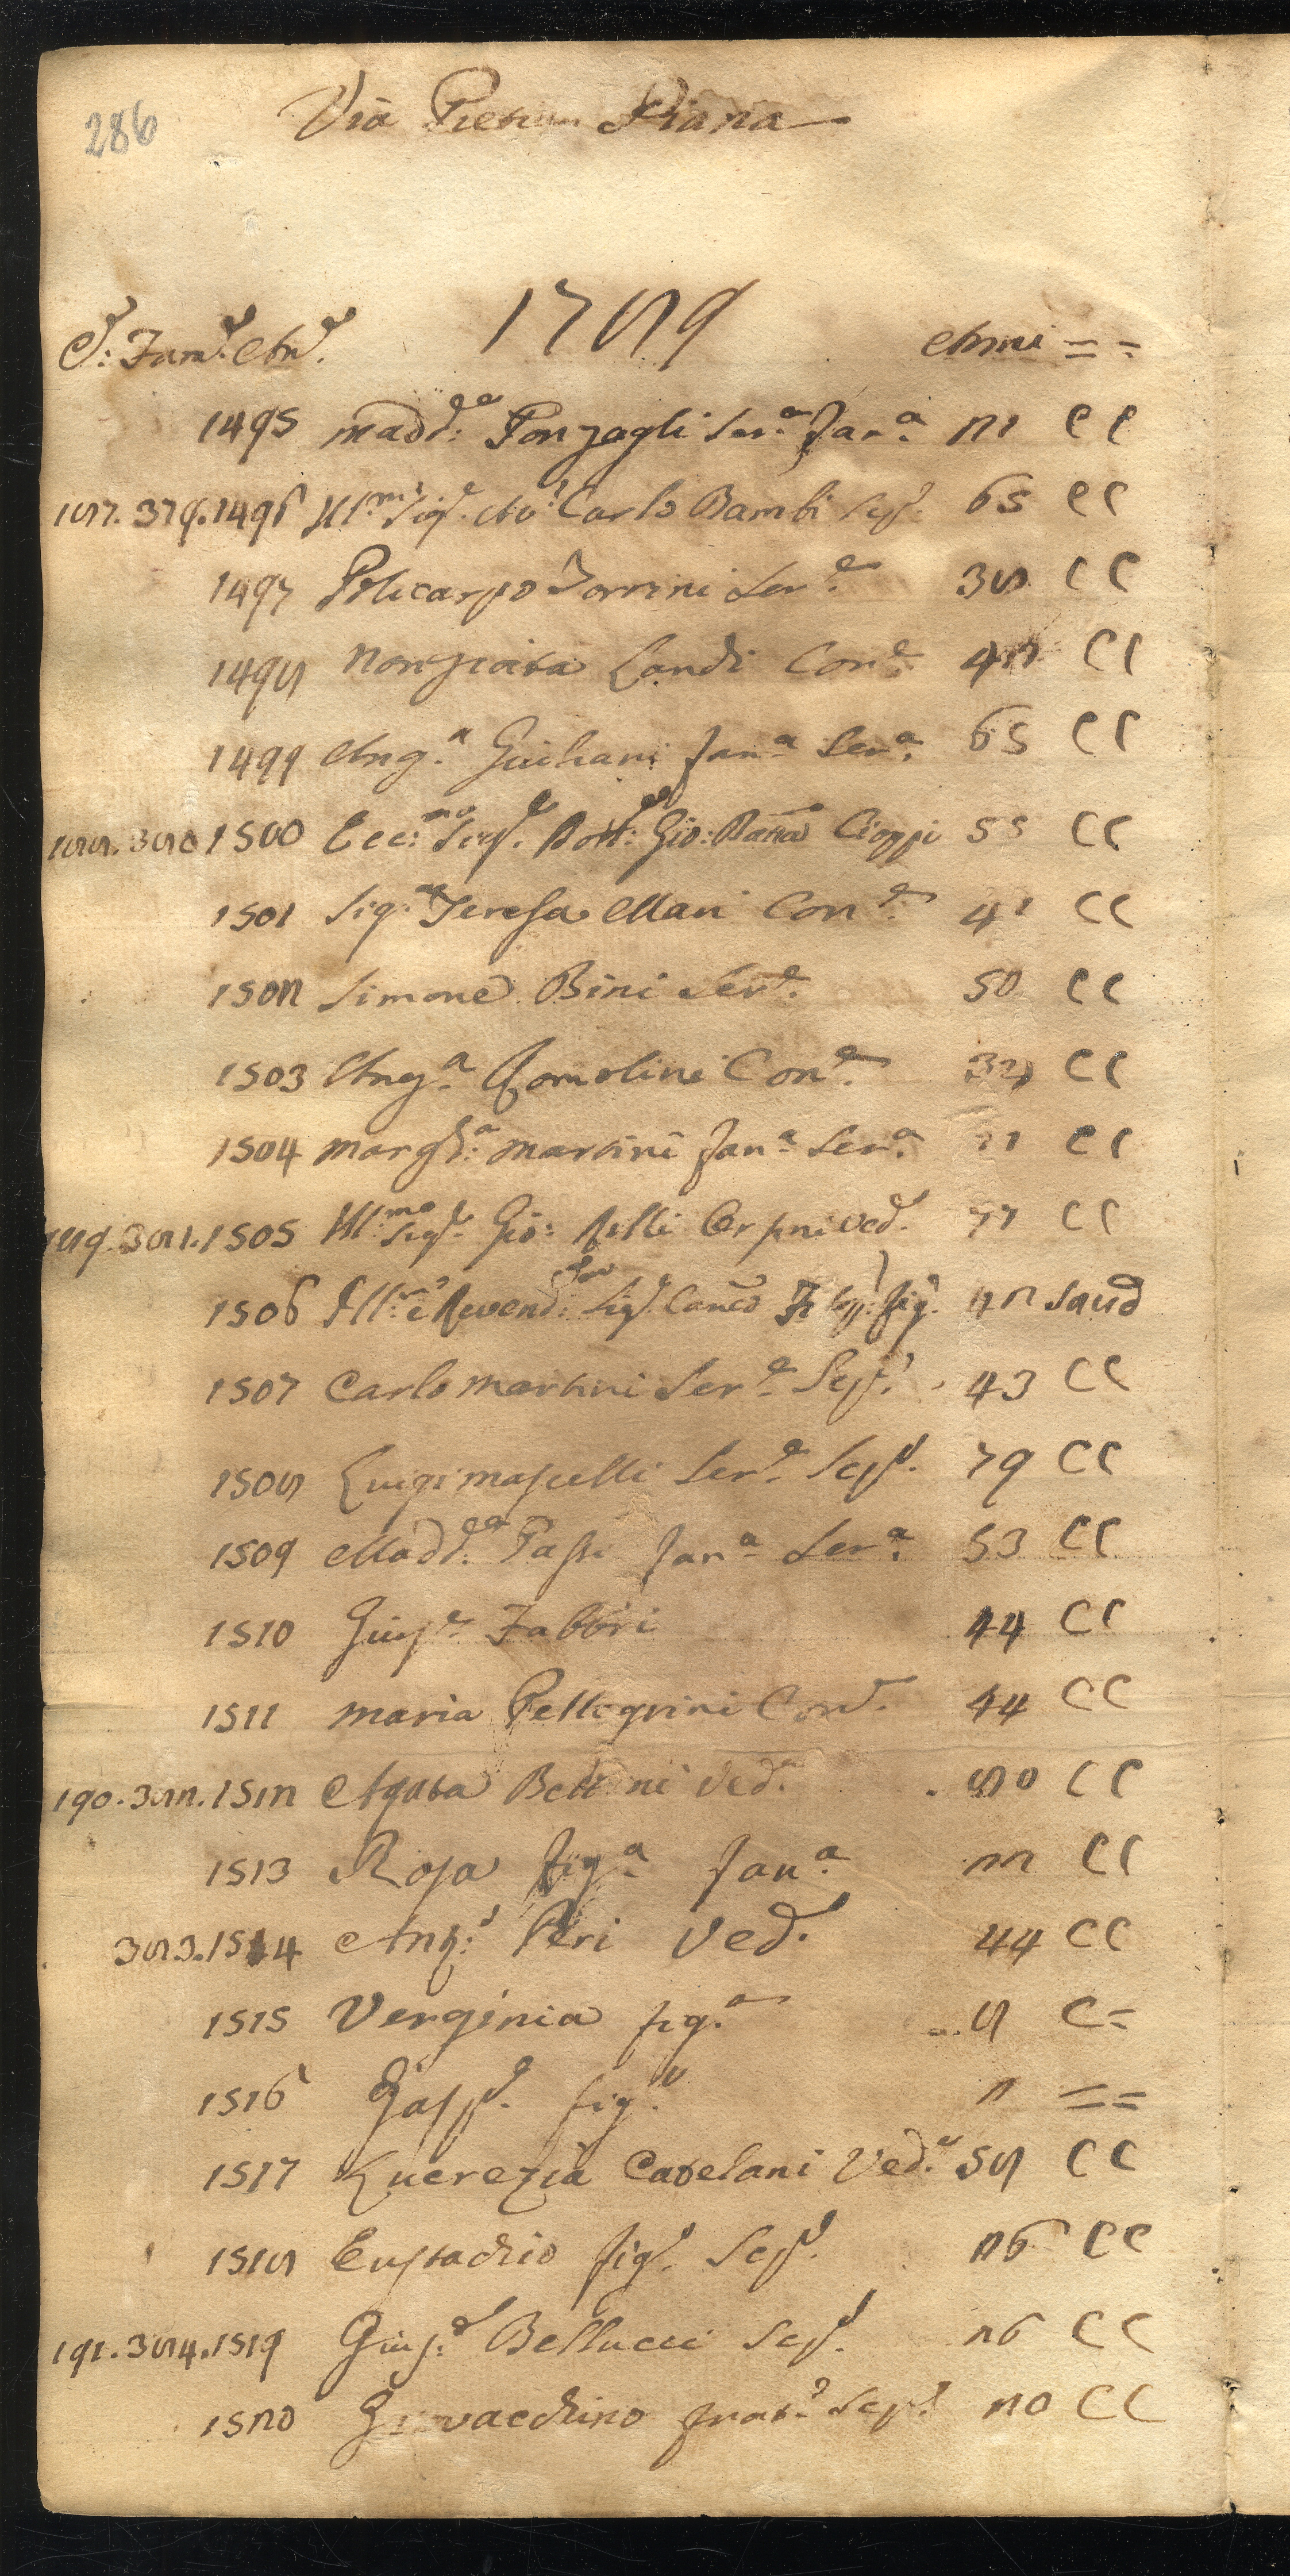 286
Via Pietra Piana
1789
C: Fam: An: Anni = =
1495 Madd:a Ponzagli Ser:a Fan:a 21 C C
187. 379. 1496 Ill:mo Sig:e Av:o Carlo Bambi Sep: 65 C C
1497 Policarpo Torrini Ser:e 38 C C
1498 Nonziata Landi Con:e 42 C C
1499 Ang:a Giuliani Fan:a Ser:a 65 C C
188. 380 1500 Ecc:mo Sig:e Dott: Gio: Batta Cioppi 55 C C
1501 Sig:a Teresa Mari Con:e 41 C C
1502 Simone Bini Ser:e 50 C C
1503 Ang:a Romolini Con:e C C
1504 Margh:a Martini Fan:a Ser:a C C
189. 381. 1505 Ill:mo Sig:e Gio: Ved: 77 C C
1506 Ill:mo e Reverend: Sig:e Canco fig: 42 Saud
1507 Carlo Martini Ser:e Sep: 43 C C
1508 Luigi Mascelli Ser:e Sep: 79 C C
1509 Madd:a Passi Fan:a Ser:a 53 C C
1510 Giusp:e Fabbri 44 C C
1511 Maria Pellegrini Con: 44 C C
190. 382. 1512 Agata Bettini Ved: 80 C C
1513 Rosa fig:a Fan:a 22 C C
383. 1514 Ant: Peri Ved: 44 C C
1515 Verginia fig:a 8 C =
1516 Gasp: fig: 2 = =
1517 Lucrezia Catelani Ved:a 58 C C
1518 Eustachio fig: Sep: 26 C C
191. 384. 1519 Gius:e Bellucci Sep: 26 C C
1520 Giovacchino frat: Sep: 20 C C